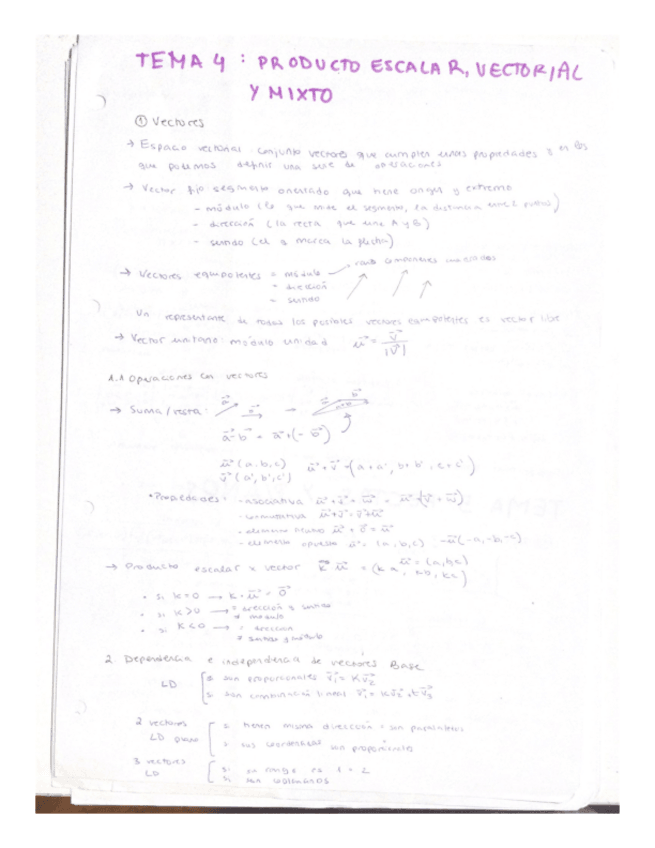 TEMA 4 : PRODUCTO ESCALAR, VECTORIAL
Y MIXTO
① Vectores
→ Espacio vectorial conjunto vectores que cumplen unas propiedades y en los
que podemos definir una serie de operaciones
→ Vector fijo segmento orientado que tiene origen y extremo
- módulo (lo que mide el segmento, la distancia entre 2 puntos)
- dirección (la recta que une A y B)
- sentido (el q marca la flecha)
→ Vectores equipolentes = módulo
= dirección
= sentido
Un representante de todos los posibles vectores equipolentes es vector libre
→ Vector unitario: módulo unidad u⃗ = v⃗ / |v⃗|
1.1 Operaciones con vectores
→ Suma / resta: a⃗ b⃗ → a+b
a⃗ - b⃗ = a⃗ + (- b⃗)
u⃗ (a, b, c) u⃗ + v⃗ = (a + a', b + b', c + c')
v⃗ (a', b', c')
• Propiedades: - asociativa
- conmutativa u⃗ + v⃗ = v⃗ + u⃗
- elemento u⃗ + 0⃗ = u⃗
- elemento opuesto u⃗ = (a, b, c) -u⃗ (-a, -b, -c)
→ Producto escalar x vector k · u⃗ = (ka, kb, kc) u⃗ = (a, b, c)
• si k = 0 → k · u⃗ = 0⃗
• si k > 0 → = dirección y sentido
≠ módulo
• si k < 0 → = dirección
≠ sentido y módulo
2. Dependencia e independencia de vectores Base
LD si son proporcionales v⃗₁ = k v⃗₂
si son combinació lineal v⃗₁ = k v⃗₂ + k v⃗₃
2 vectores si tienen misma dirección = son paralelos
LD si sus coordenadas son proporcionales
3 vectores si su rango es 1 o 2
LD si son coplanarios